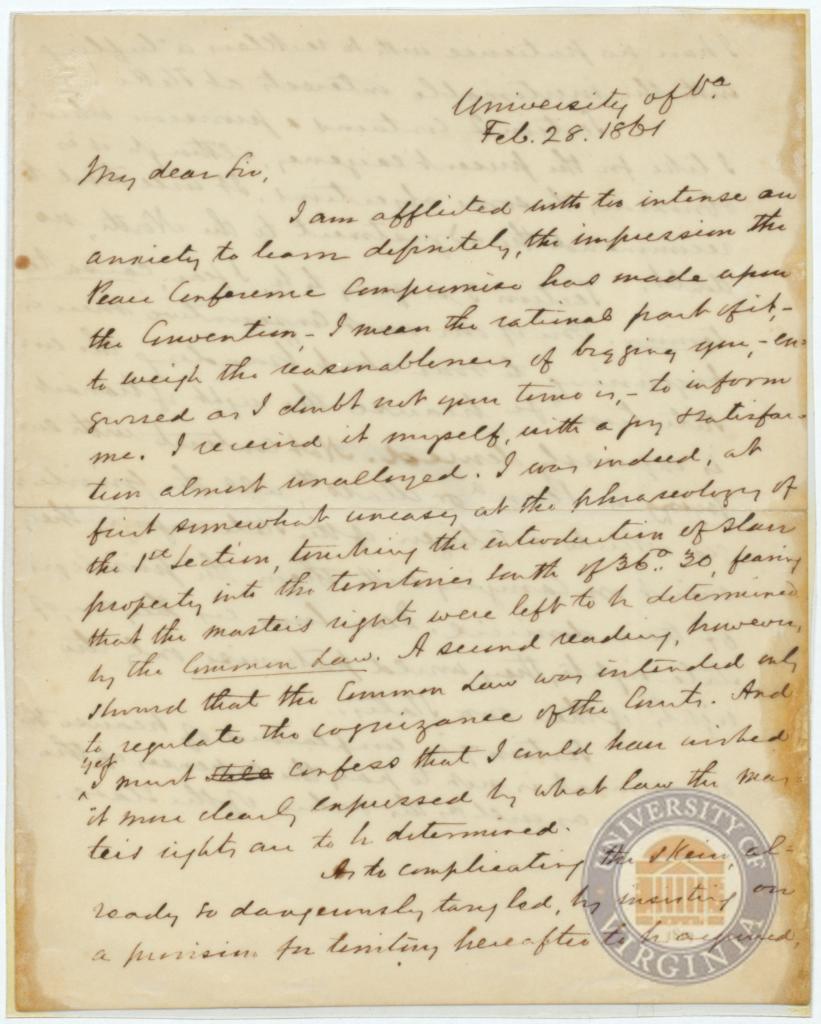 University of Va
Feb. 28. 1861
My dear Sir,
I am afflicted with too intense an
anxiety to learn definitely, the impression the
Peace Conference Compromise has made upon
the Convention – I mean the rational part of it, –
to weigh the reasonableness of begging you, – en-
grossed as I doubt not your time is, – to inform
me. I received it myself, with a joy & satisfac-
tion almost unalloyed. I was indeed, at
first somewhat uneasy at the phraseology of
the 1st Section, touching the introduction of slave
property into the territories south of 36°. 30, fearing
that the master's rights were left to be determined
by the Common Law. A second reading, however,
showed that the Common Law was intended only
to regulate the cognizance of the Courts. And
yet I must still confess that I could have wished
it more clearly expressed by what law the mas-
ter's rights are to be determined.
As to complicating the skein, al-
ready so dangerously tangled, by insisting on
a provision for territory hereafter to be acquired,
UNIVERSITY OF VIRGINIA